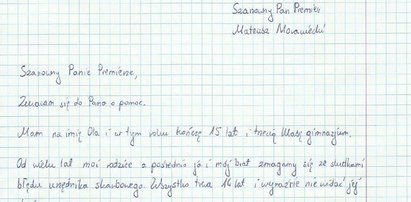 Szanowny Pan Premier
Mateusz Morawiecki
Szanowny Panie Premierze,
Zwracam się do Pana o pomoc.
Mam na imię Ola i w tym roku kończę 15 lat i trzecią klasę gimnazjum.
Od wielu lat moi rodzice a pośrednio ja i mój brat zmagamy się ze skutkami
błędu urzędnika skarbowego. Wszystko trwa 16 lat i wyraźnie nie widać jej